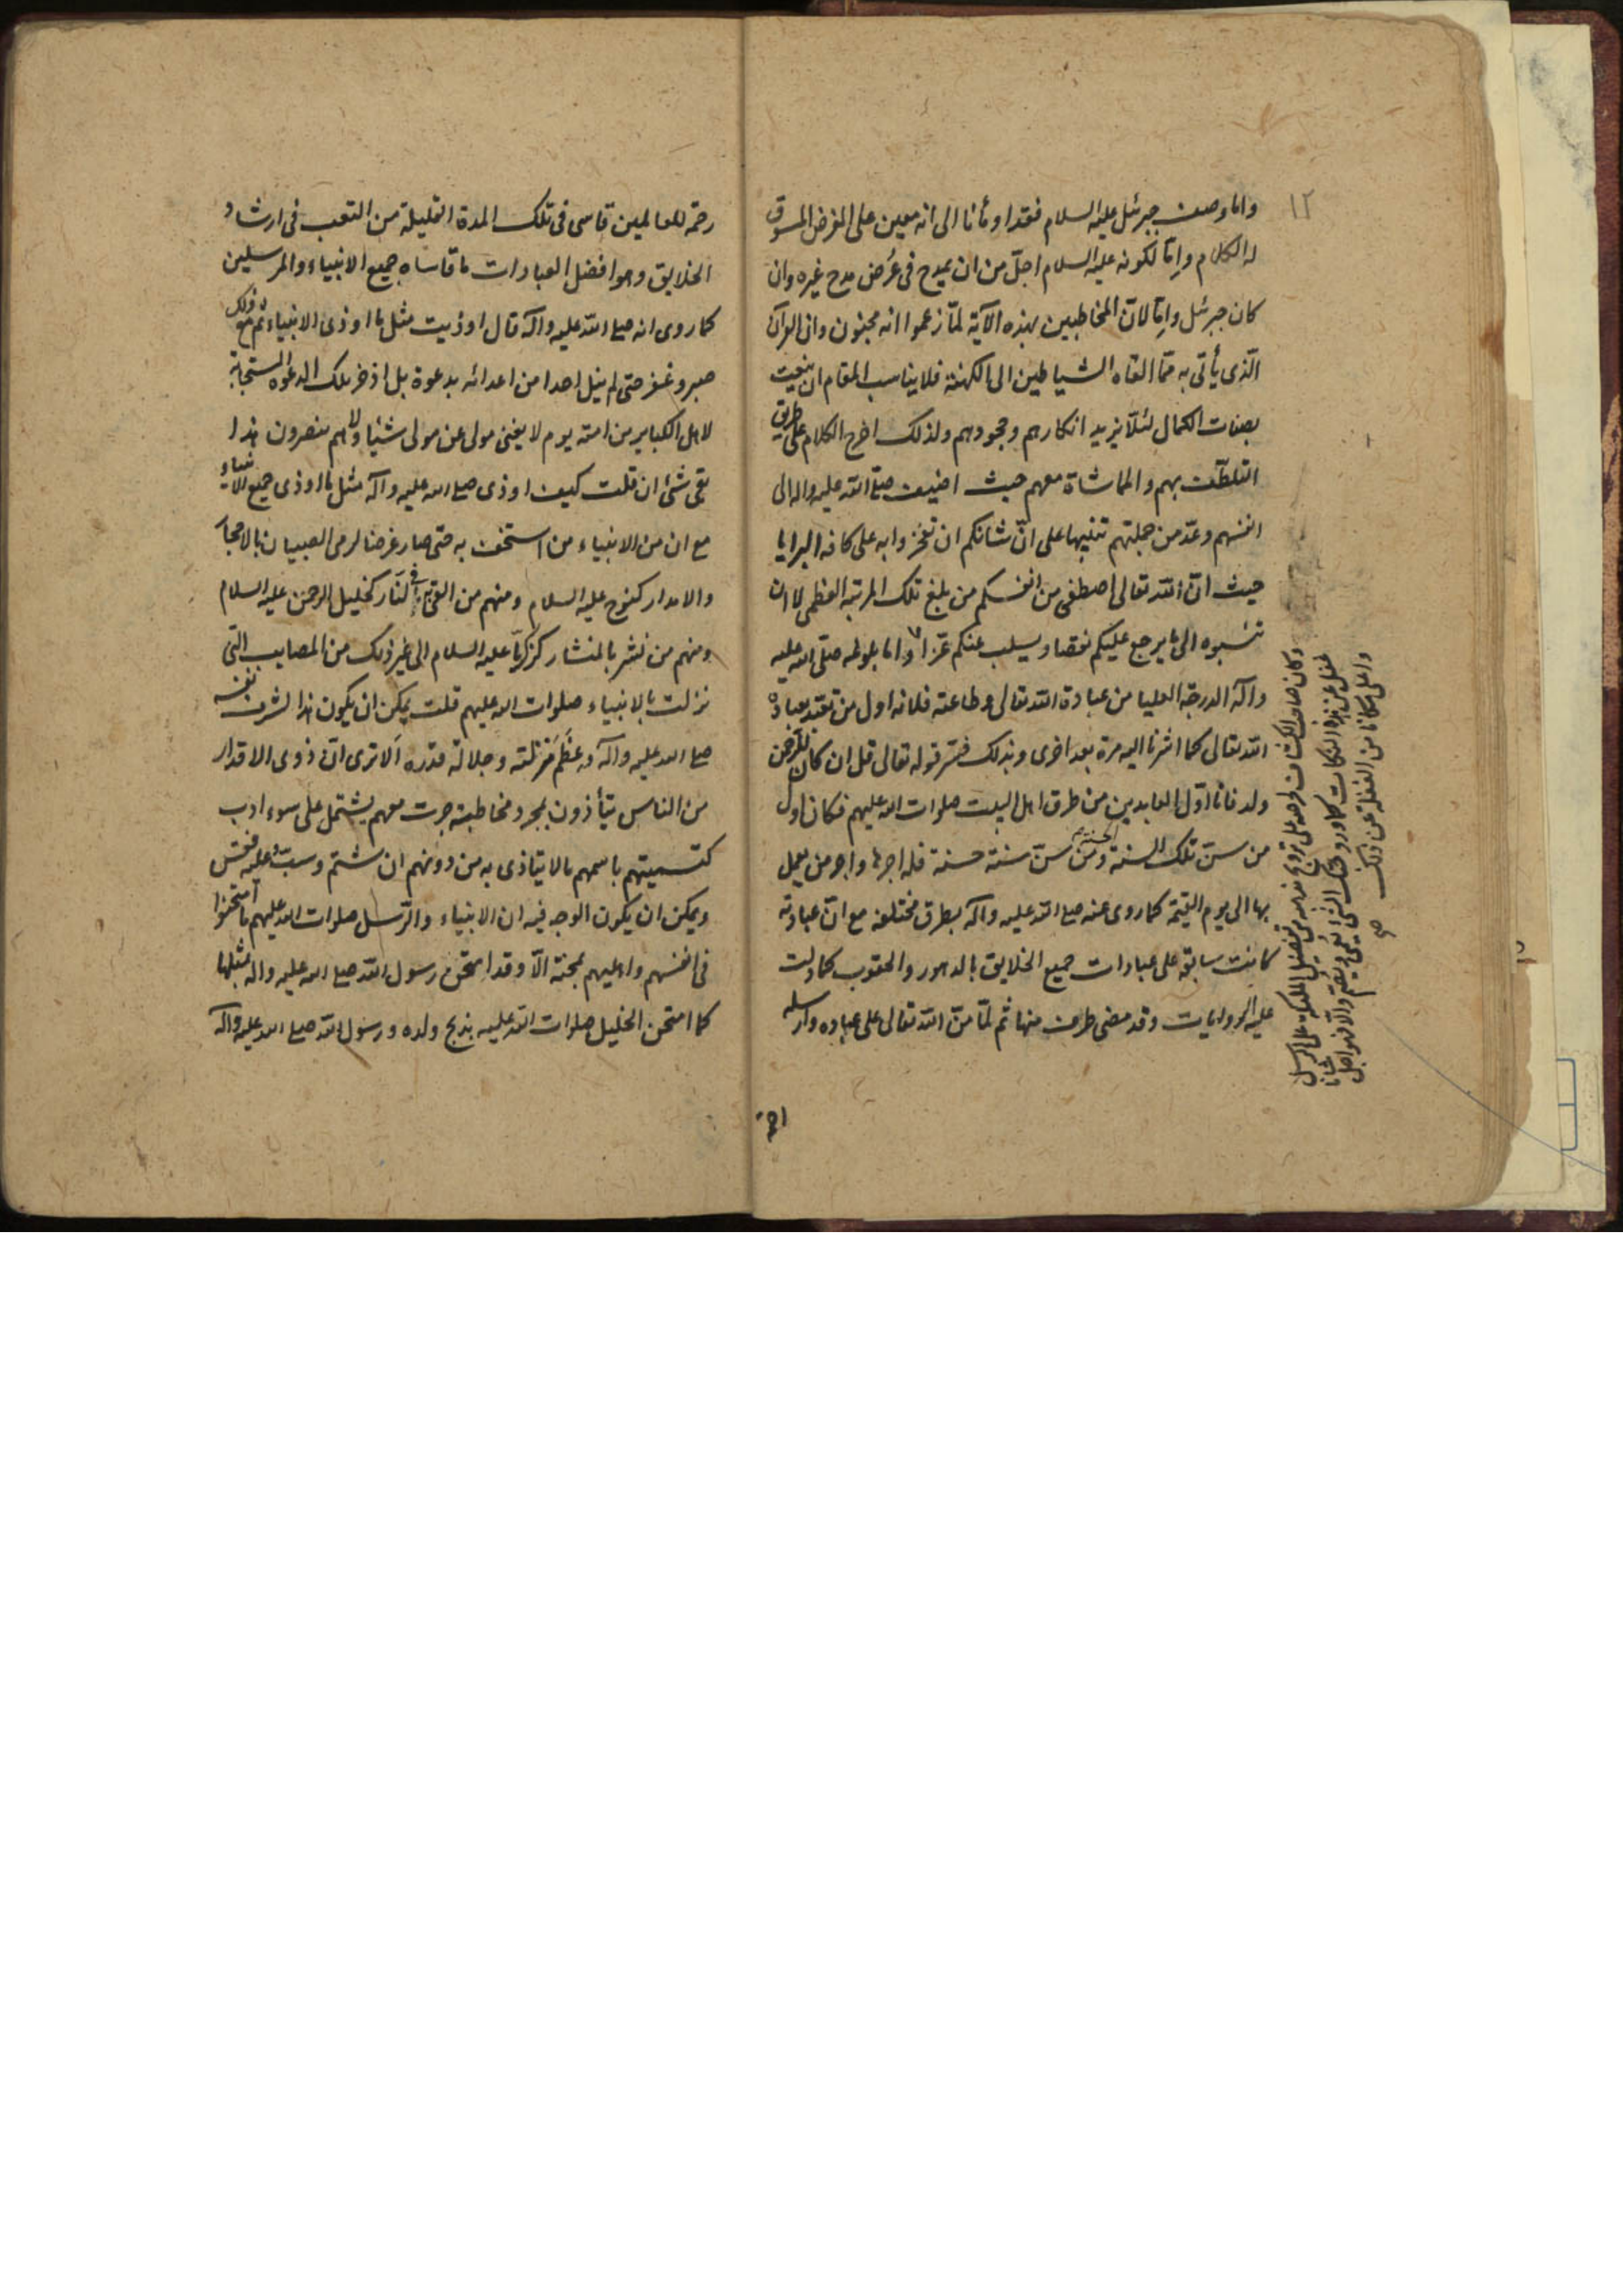 ١٢
واما وصف جبرئيل عليه السلام فقد اومأنا الى انه معين على الغرض المسوق
له الكلام واما لكونه عليه السلام اجلّ من ان يمدح فى عرض مدح غيره وان
كان جبرئيل واما لانّ المخاطبين بهذه الآية لمّا زعموا انه مجنون وان القرآن
الّذى يأتى به ممّا القاه الشياطين الى الكهنة فلا يناسب المقام ان ينعت
بصفات الكمال لئلّا يزيد انكارهم وجحودهم ولذلك اخرج الكلام على طريق
التلطّف بهم والمماشاة معهم حيث اضيف صلى الله عليه واله الى
انفسهم وعدّ من جملتهم تنبيها على انّ شانكم ان تفخروا به على كافه البرايا
حيث انّ الله تعالى اصطفى من انفسكم من بلغ تلك المرتبة العظمى لا ان
تنسبوه الى ما يرجع عليكم نقصا ويسلب عنكم عزا واما بلوغه صلى الله عليه
وآله الدرجة العليا من عبادة الله تعالى وطاعته فلانه اول من تعبّد بعبادة
الله تعالى كما اشرنا اليه مرة بعد اخرى وبذلك فسّر قوله تعالى قل ان كان للرحمن
ولد فانا اوّل العابدين من طرق اهل البيت صلوات الله عليهم فكان اول
من سنّ تلك السنة الحسنة ومن سنّ سنة حسنة فله اجرها واجر من يعمل
بها الى يوم القيمة كما روى عنه صلى الله عليه وآله بطرق مختلفه مع انّ عبادته
كانت سابقة على عبادات جميع الخلايق بالدهور والحقوب كما دلت
عليه الروايات وقد مضى طرف منها ثم لمّا منّ الله تعالى على عباده وارسله
وكان صاحب الكشاف لحرصه على ترويج مذهبه فى تفضيل الملئكة على الرسل
غفل عن هذه النكات كما ورد حبك الشئ يعمى ويصم والّا فهو اجل شانا
واعلى مكانا من الغفلة عن ذلك
رحمة للعالمين قاسى فى تلك المدة القليلة من التعب فى ارشاد
الخلايق وهو افضل العبادات ما قاساه جميع الانبياء والمرسلين
كما روى انه صلى الله عليه وآله قال اوذيت مثل ما اوذى الانبياء ثم مع ذلك
صبر وغفر حتى لم ينل احدا من اعدائه بدعوة بل اذخر تلك الدعوة المستجابة
لاهل الكباير من امته يوم لا يغنى مولى عن مولى شيئا ولا هم ينصرون هذا
بقى شئ ان قلت كيف اوذى صلى الله عليه وآله مثل ما اوذى جميع الانبياء
مع ان من الانبياء من استخف به حتى صار غرضا لرمى الصبيان بالاحجار
والامدار كنوح عليه السلام ومنهم من القى به فى النّار كخليل الرحمن عليه السلام
ومنهم من نشر بالمنشار كزكريّا عليه السلام الى غير ذلك من المصايب التى
نزلت بالانبياء صلوات الله عليهم قلت يمكن ان يكون هذا لشرف نفسه
صلى الله عليه وآله وعظم منزلته وجلالة قدره الا ترى انّ ذوى الاقدار
من الناس يتأذون بمجرد مخاطبة جرت معهم يشتمل على سوء ادب
كتسميتهم باسمهم ما لا يتاذى به من دونهم ان شتم وسبّ وعليه فقس
ويمكن ان يكون الوجه فيه ان الانبياء والرّسل صلوات الله عليهم ما امتحنوا
فى انفسهم واهليهم بمحنة الّا وقد امتحن رسول الله صلى الله عليه واله بمثلها
كما امتحن الخليل صلوات الله عليه بذبح ولده ورسول الله صلى الله عليه وآله